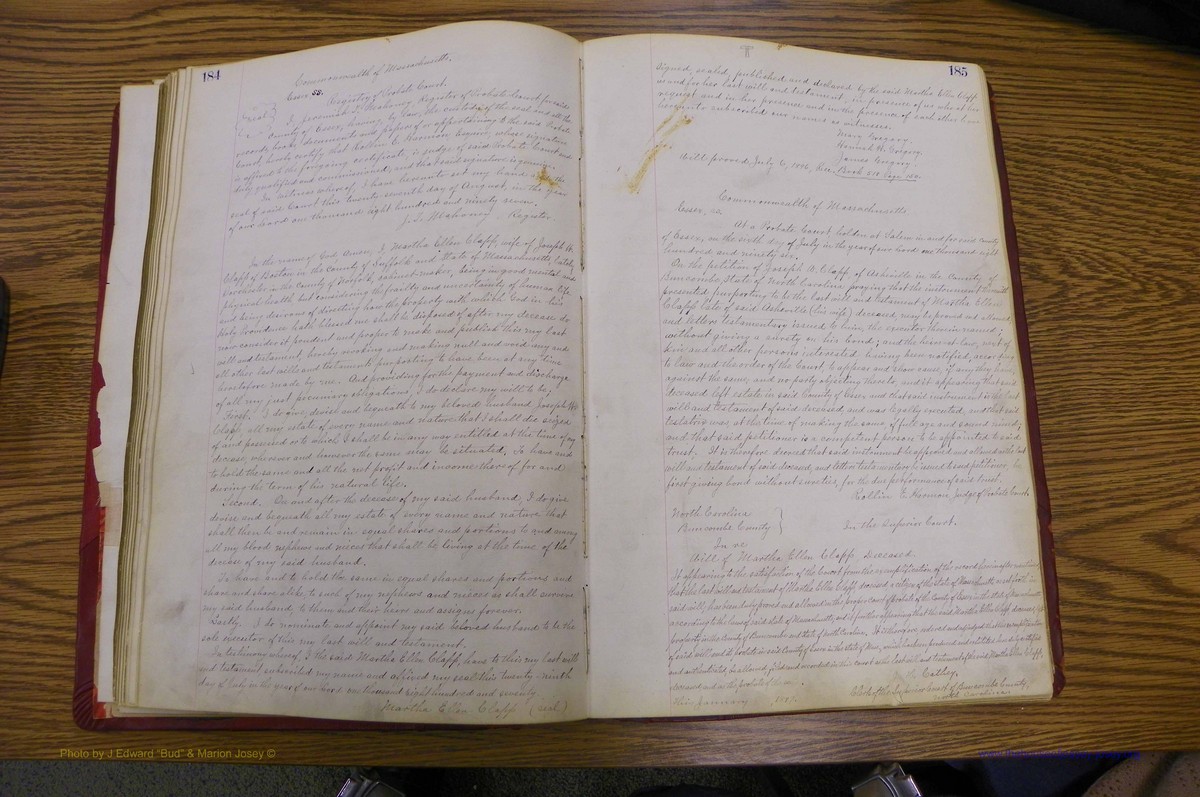 184
Commonwealth of Massachusetts.
Essex ss. Registry of Probate Court.
Seal I, Jeremiah T. Mahoney, Register of Probate Court for said
County of Essex, having by law, the custody of the seal and all the
records, books, documents and papers of or appertaining to the said Probate
Court, hereby certify that Rollin E. Harmon Esquire, whose signature
is affixed to the foregoing certificate, is judge of said Probate Court and
duly qualified and commissioned, and that said signature is genuine.
In witness whereof, I have hereunto set my hand and the
seal of said Court this twenty seventh day of August, in the year
of our Lord one thousand eight hundred and ninety seven.
J. T. Mahoney Register
In the name of God Amen, I Martha Ellen Clapp, wife of Joseph W.
Clapp of Boston in the County of Suffolk and State of Massachusetts, lately
Dorchester in the county of Norfolk, cabinet maker, being in good mental and
physical health but considering the frailty and uncertainty of human life
and being desirous of directing how the property with which God in his
Holy Providence hath blessed me shall be disposed of after my decease do
now consider it prudent and proper to make and publish this my last
will and testament, hereby revoking and making null and void any and
all other last wills and testaments purporting to have been at any time
heretofore made by me. And providing for the payment and discharge
of all my just pecuniary obligations, I do declare my will to be;
First. I do give, devise and bequeath to my beloved husband Joseph W.
Clapp, all my estate of every name and nature that I shall die seized
of and possessed or to which I shall be in any way entitled at the time of my
decease, wherever and however the same may be situated, To have and
to hold the same and all the net profit and income thereof for and
during the term of his natural life.
Second. On and after the decease of my said husband, I do give
devise and bequeath all my estate of every name and nature that
shall then be and remain in equal shares and portions to and among
all my blood nephews and nieces that shall be living at the time of the
decease of my said husband.
To have and to hold the same in equal shares and portions and
share and share alike to such of my nephews and nieces as shall survive
my said husband, to them and their heirs and assigns forever.
Lastly. I do nominate and appoint my said beloved husband to be the
sole executor of this my last will and testament.
In testimony whereof, I the said Martha Ellen Clapp, have to this my last will
and testament subscribed my name and affixed my seal this twenty-ninth
day of July in the year of our Lord one thousand eight hundred and seventy
Martha Ellen Clapp (seal)
185
Signed, sealed, published and declared by the said Martha Ellen Clapp
as and for her last will and testament, in presence of us who at her
request and in his presence and in the presence of each other have
hereunto subscribed our names as witnesses.
Mary Gregory
Hannah W. Gregory
James Gregory
Will proved, July 6, 1896, Rec. Book 510 Page
Commonwealth of Massachusetts
Essex, ss.
At a Probate Court holden at Salem in and for said County
of Essex, on the sixth day of July in the year of our Lord one thousand eight
hundred and ninety six.
On the petition of Joseph W. Clapp, of Asheville in the County of
Buncombe, State of North Carolina praying that the instrument herewith
presented purporting to be the last will and testament of Martha Ellen
Clapp late of said Asheville (his wife) deceased, may be proved and allowed
and letters testamentary issued to him, the executor therein named;
without giving a surety on his bond; and the heirs at law, next of
kin and all other persons interested having been notified, according
to law and the order of the Court, to appear and show cause, if any they have
against the same, and no party objecting thereto, and it appearing that said
deceased left estate in said County of Essex and that said instrument is the last
will and testament of said deceased and was legally executed, and that said
testatrix was at the time of making the same of full age and sound mind;
and that said petitioner is a competent person to be appointed to said
trust. It is therefore decreed that said instrument be approved and allowed as the last
will and testament of said deceased, and letters testamentary be issued to said petitioner he
first giving bond without sureties, for the due performance of said trust.
Rollin E. Harmon, Judge of Probate Court.
North Carolina
Buncombe County
In the Superior Court.
In re
Will of Martha Ellen Clapp Deceased
It appearing to the satisfaction of the Court from the exemplification of the record
that the last will and testament of Martha Ellen Clapp deceased a citizen of the state of Massachusetts
said will, has been duly proved and allowed in the proper court of Probate of the County of Essex in the state of Massachusetts
according to the laws of said state of Massachusetts and it further appearing that the said Martha Ellen Clapp deceased, left
property in the County of Buncombe and state of North Carolina. It is therefore ordered and adjudged that the exemplification
of said will and its probate in said County of Essex in the state of
and authenticated, be allowed, filed and recorded in this court as the last will and testament of the said Martha Ellen Clapp,
deceased and as the probate thereof.
This January
Cathey.
Clerk of the Superior Court of Buncombe County,
North Carolina
Photo by J Edward "Bud" & Marion Josey ©